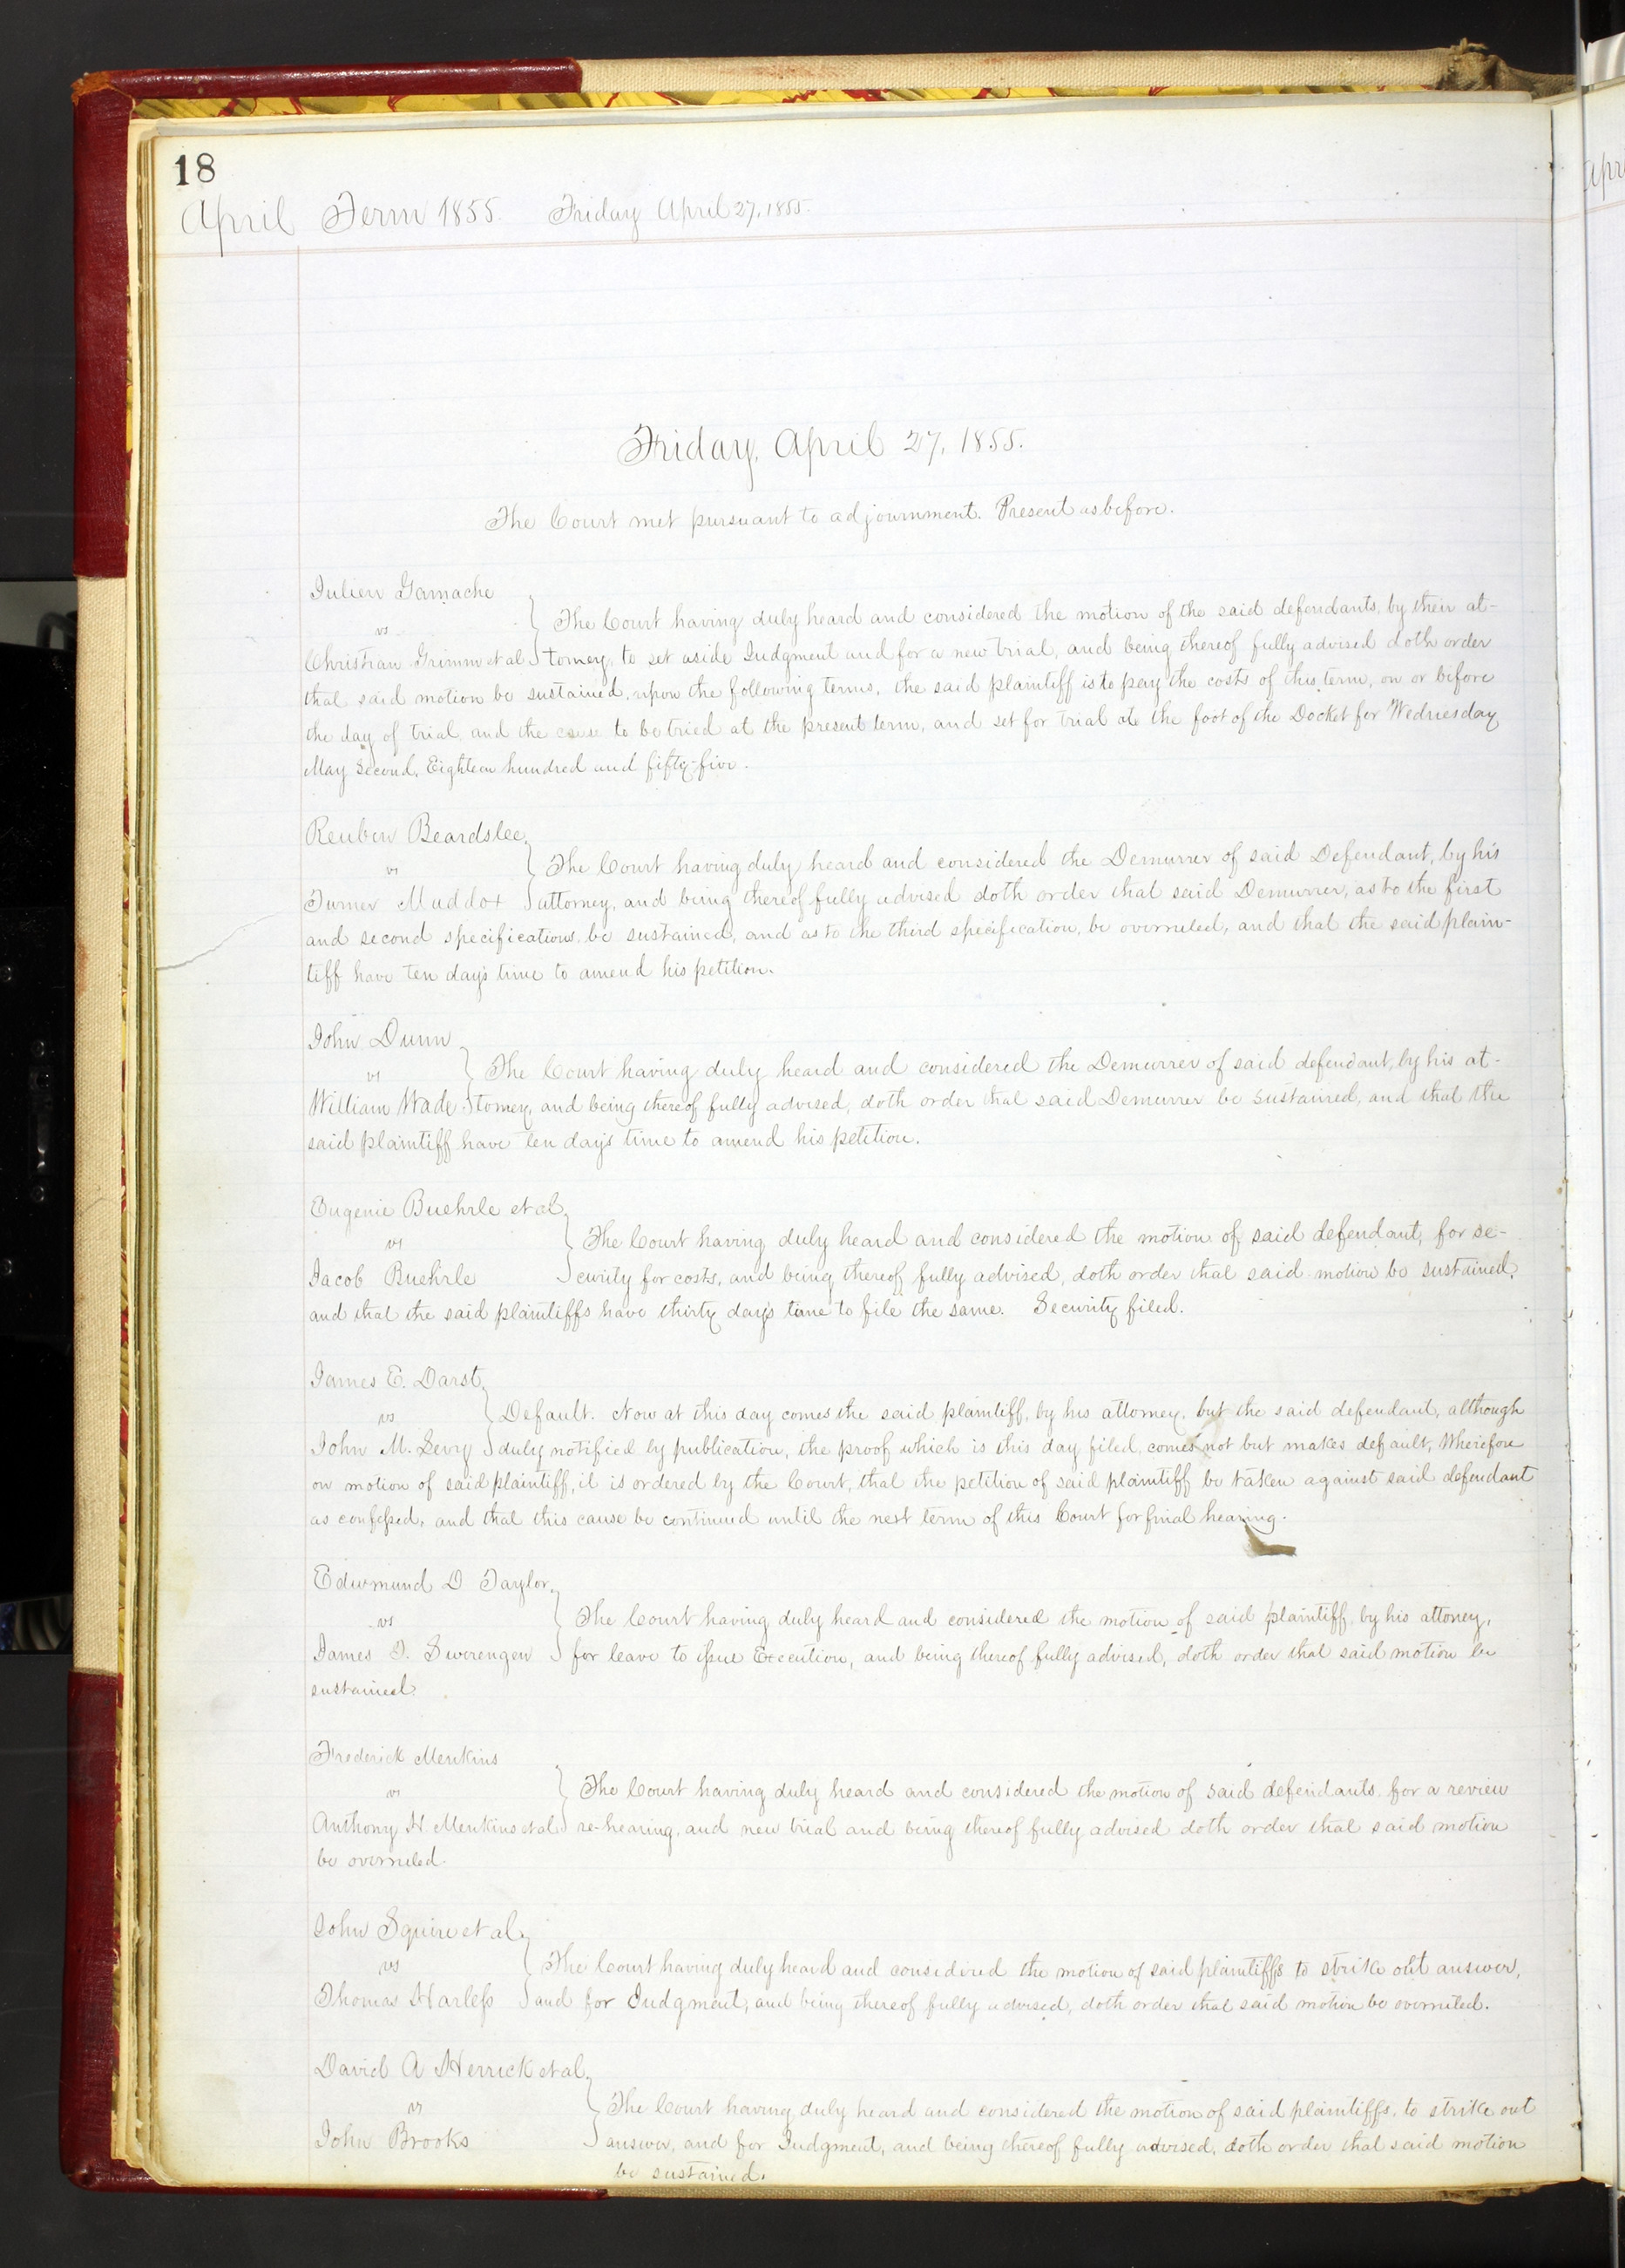 18
April Term 1855. Friday April 27, 1855.
Friday, April 27, 1855.
The Court met pursuant to adjournment. Present as before.
Julien Gamache
vs
Christian Grimm et al
The Court having duly heard and considered the motion of the said defendants, by their at-
torney, to set aside Judgment and for a new trial, and being thereof fully advised doth order
that said motion be sustained, upon the following terms, the said plaintiff is to pay the costs of this term, on or before
the day of trial, and the cause to be tried at the present term, and set for trial at the foot of the Docket for Wednesday
May Second, Eighteen hundred and fifty-five.
Reuben Beardslee,
vs
Turner Maddox
The Court having duly heard and considered the Demurrer of said Defendant, by his
attorney, and being thereof fully advised doth order that said Demurrer, as to the first
and second specifications, be sustained, and as to the third specification, be overruled, and that the said plain-
tiff have ten days time to amend his petition.
John Dunn
vs
William Wade
The Court having duly heard and considered the Demurrer of said defendant, by his at-
torney, and being thereof fully advised, doth order that said Demurrer be sustained, and that the
said plaintiff have ten days time to amend his petition.
Eugenie Buehrle et al,
vs
Jacob Buehrle
The Court having duly heard and considered the motion of said defendant, for se-
curity for costs, and being thereof fully advised, doth order that said motion be sustained,
and that the said plaintiffs have thirty days time to file the same. Security filed.
James E. Darst,
vs
John M. Levy
Default. Now at this day comes the said plaintiff, by his attorney, but the said defendant, although
duly notified by publication, the proof which is this day filed, comes not but makes default, Wherefore
on motion of said plaintiff, it is ordered by the Court, that the petition of said plaintiff be taken against said defendant
as confessed, and that this cause be continued until the next term of this Court for final hearing.
Edwmund D Taylor,
vs
James T. Swerengen
The Court having duly heard and considered the motion of said plaintiff, by his attoney,
for leave to issue Execution, and being thereof fully advised, doth order that said motion be
sustained.
Frederick Menkins
vs
Anthony H. Menkins et al
The Court having duly heard and considered the motion of said defendants for a review
re-hearing, and new trial and being thereof fully advised doth order that said motion
be overruled.
John Squire et al,
vs
Thomas Harless
The Court having duly heard and considered the motion of said plaintiffs to strike out answer,
and for Judgment, and being thereof fully advised, doth order that said motion be overruled.
David A Herrick et al,
vs
John Brooks
The Court having duly heard and considered the motion of said plaintiffs, to strike out
answer, and for Judgment, and being thereof fully advised, doth order that said motion
be sustained.